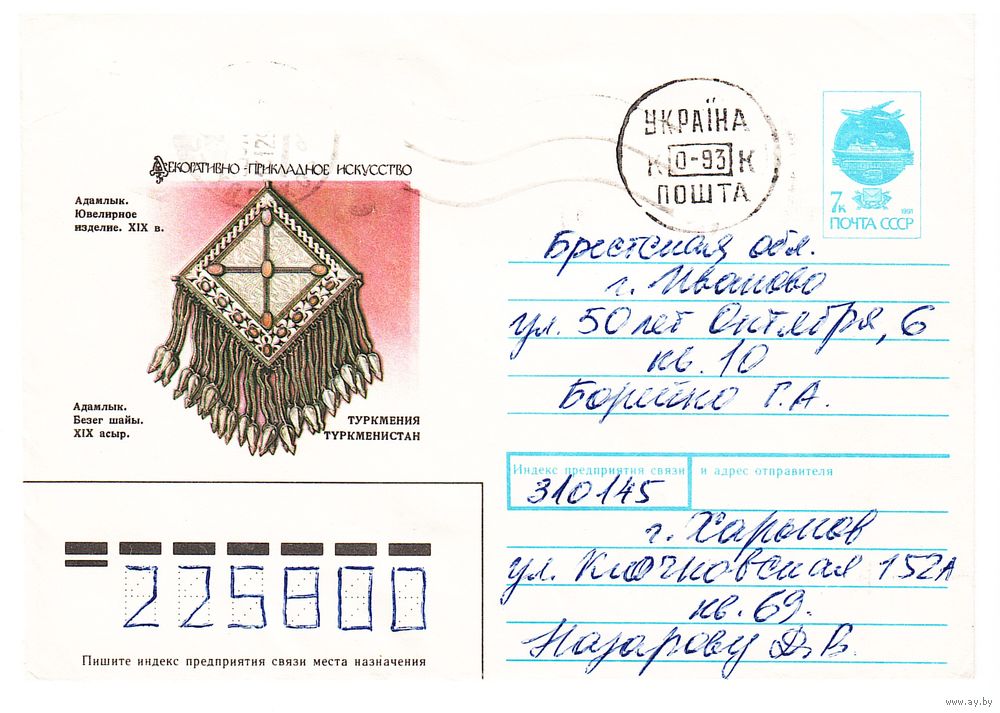 ДЕКОРАТИВНО-ПРИКЛАДНОЕ ИСКУССТВО
Адамлык.
Ювелирное
изделие. XIX в.
Адамлык.
Безег шайы.
XIX асыр.
ТУРКМЕНИЯ
ТҮРКМЕНИСТАН
УКРАЇНА
К 0-93 К
ПОШТА
7к
1991
ПОЧТА СССР
Брестская обл.
г. Иваново
ул. 50 лет Октября, 6
кв. 10
Борейко Г.А.
Индекс предприятия связи и адрес отправителя
310145
г. Харьков
ул. Клочковская 152А
кв. 69.
Назарову Д.В.
225800
Пишите индекс предприятия связи места назначения
www.ay.by